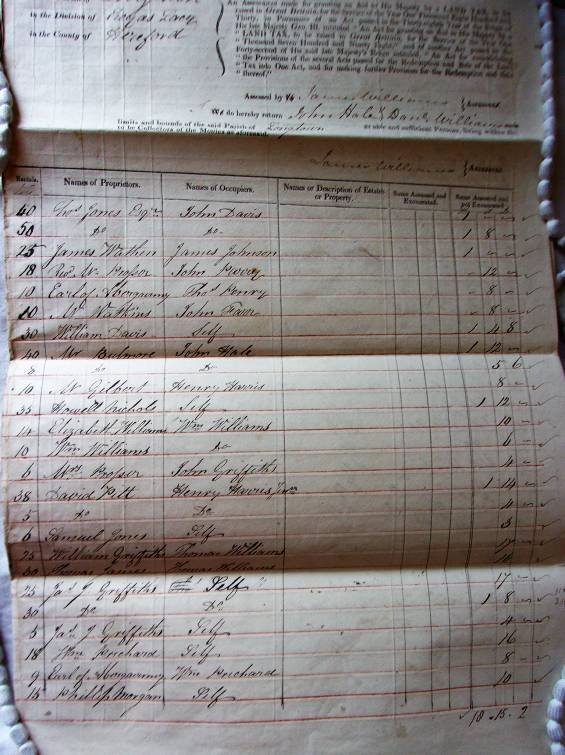 in the Division of Ewyas Lacy
in the County of Hereford
An Assessment made for granting an Aid to His Majesty by a LAND TAX, to be raised
in Great Britain, for the Service of the Year One Thousand Eight Hundred and
Thirty, in Pursuance of an Act passed in the Thirty-eighth Year of the Reign of
His late Majesty Geo. III. intituled "An Act for granting an Aid to His Majesty by
"LAND TAX, to be raised in Great Britain, for the Service of the Year One
"Thousand Seven Hundred and Ninety Eight," and of another Act passed in the
Forty-second of his said late Majesty's Reign, intituled "An Act for consolidating
"the Provisions of the several Acts passed for the Redemption and Sale of the Land
"Tax into One Act, and for making further Provision for the Redemption and Sale
"thereof."
Assessed by James Williams } Assessors.
We do hereby return John Hale & Danl Williams
limits and bounds of the said Parish of Longtown as able and sufficient Persons, living within the
to be Collectors of the Monies as aforesaid.
James Williams } Assessors.
Rentals. Names of Proprietors. Names of Occupiers. Names or Description of Estates or Property. Sums Assessed and Exonerated. Sums Assessed and not Exonerated.
40 Thos Jones Esqre John Davis
50 Do Do 1 8 -
25 James Watkin James Johnson 1 - -
18 Revd W. Prosser John 12 -
10 Earl of Abergavenny Thos Penry 8 -
10 Mr Watkins John 8 -
30 William Davis Self 1 4 8
40 Mr Bulmore John Hale 1 12 -
8 Do Do 5 6
10 Mr Gilbert Henry Harris 8 -
35 Howell Nichols Self 1 12 -
14 Elizabeth Williams Wm Williams 10 -
10 Wm Williams Do 6 -
6 Mrs Prosser John Griffiths 4 -
38 David Pitt Henry Harris Junr 1 14 -
5 Do Do 4 -
6 Samuel Jones Self 3 -
25 William Griffiths Thomas Williams 17 -
Thomas Thomas Williams
25 Jas J Griffiths Self 17 -
30 Do Do 1 8 -
5 Jas J Griffiths Self 4 -
18 Wm Prichard Self 16 -
9 Earl of Abergavenny Wm Prichard 8 -
14 Phillip Morgan Self 10 -
18 . 15 . 2